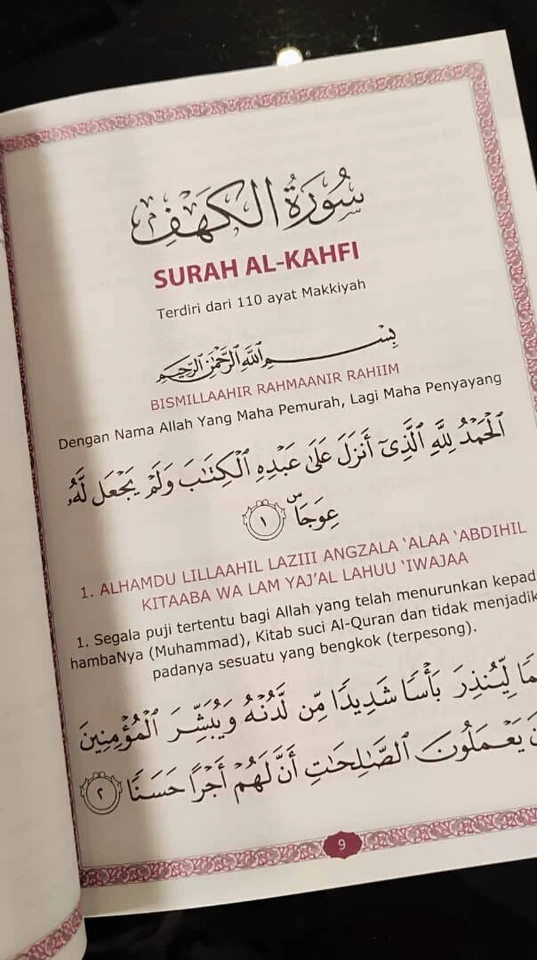 سُورَةُ الكَهْفِ
SURAH AL-KAHFI
Terdiri dari 110 ayat Makkiyah
بِسْمِ اللَّهِ الرَّحْمَٰنِ الرَّحِيمِ
BISMILLAAHIR RAHMAANIR RAHIIM
Dengan Nama Allah Yang Maha Pemurah, Lagi Maha Penyayang
ٱلْحَمْدُ لِلَّهِ ٱلَّذِىٓ أَنزَلَ عَلَىٰ عَبْدِهِ ٱلْكِتَٰبَ وَلَمْ يَجْعَل لَّهُۥ
عِوَجَا ۜ ١
1. ALHAMDU LILLAAHIL LAZIII ANGZALA ‘ALAA ‘ABDIHIL
KITAABA WA LAM YAJ’AL LAHUU ‘IWAJAA
1. Segala puji tertentu bagi Allah yang telah menurunkan kepada
hambaNya (Muhammad), Kitab suci Al-Quran dan tidak menjadik
padanya sesuatu yang bengkok (terpesong).
مَا لِّيُنذِرَ بَأْسًا شَدِيدًا مِّن لَّدُنْهُ وَيُبَشِّرَ ٱلْمُؤْمِنِينَ
يَعْمَلُونَ ٱلصَّٰلِحَٰتِ أَنَّ لَهُمْ أَجْرًا حَسَنًا ٢
9